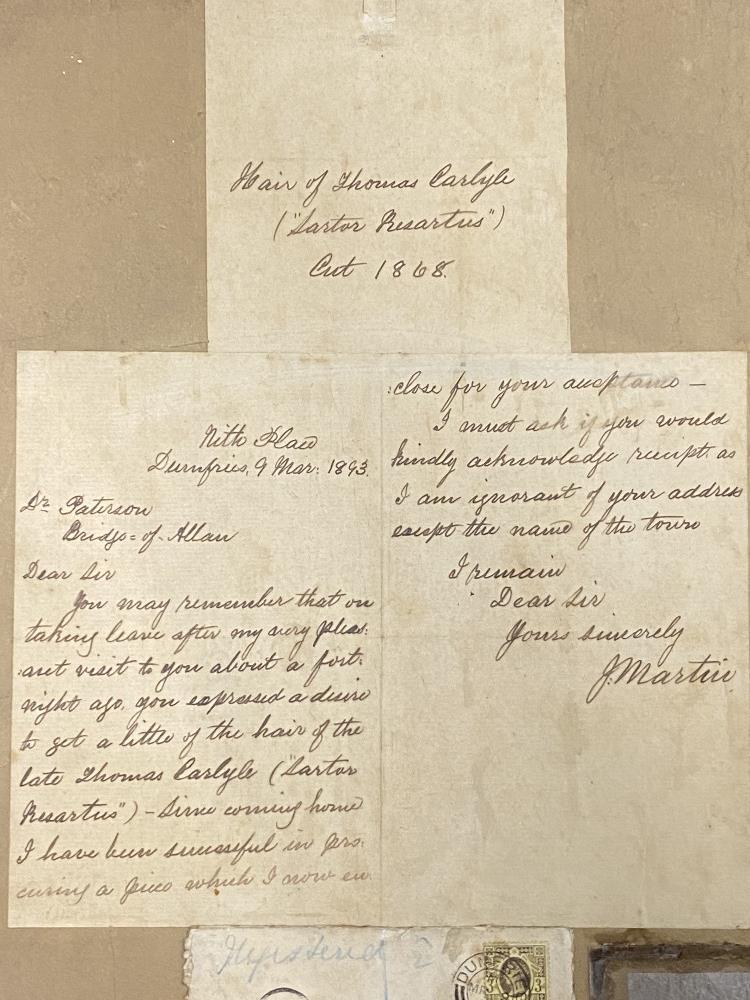 Hair of Thomas Carlyle
("Sartor Resartus")
Cut 1868.
Nith Place
Dumfries, 9 Mar: 1893.
Dr. Paterson
Bridge=of-Allan
Dear Sir
You may remember that on
taking leave after my very pleas:
:ant visit to you about a fort:
night ago, you expressed a desire
to get a little of the hair of the
late Thomas Carlyle ("Sartor
Resartus") – Since coming home
I have been successful in pro:
curing a piece which I now en:
:close for your acceptance –
I must ask if you would
kindly acknowledge receipt as
I am ignorant of your address
except the name of the town
I remain
Dear Sir
Yours sincerely
J. Martin
Registered
DUMFRIES
3 3